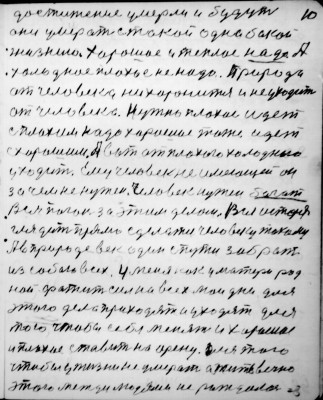 достижение умерли и будут 10
они умерать с такой одинакой
жизнею. Хорошае и теплае надо. А
холоднае плохае не надо. Природа
от человека не хоронится и не уходит
от человека. Нужно плохае идет
с плохим надо харошае тоже идет
с харошим. А вот от плохого холодного
уходит. Ему человек не имеющей он
за чем не нужен. Человек нужен богат
Вся погоня за этим делом. Вся история
глядит прямо сделать человеку такому
А в природе век один с пути забрат
из собою всех. У меня как у матери род
ной хватит сил на всех мои дни для
этого дела приходят и уходят для
того чтобы себя менять и харошае
и плохае ставить на арену. Для того
чтобы в жизни не умерать а жить вечно
этого между людями не рождалось